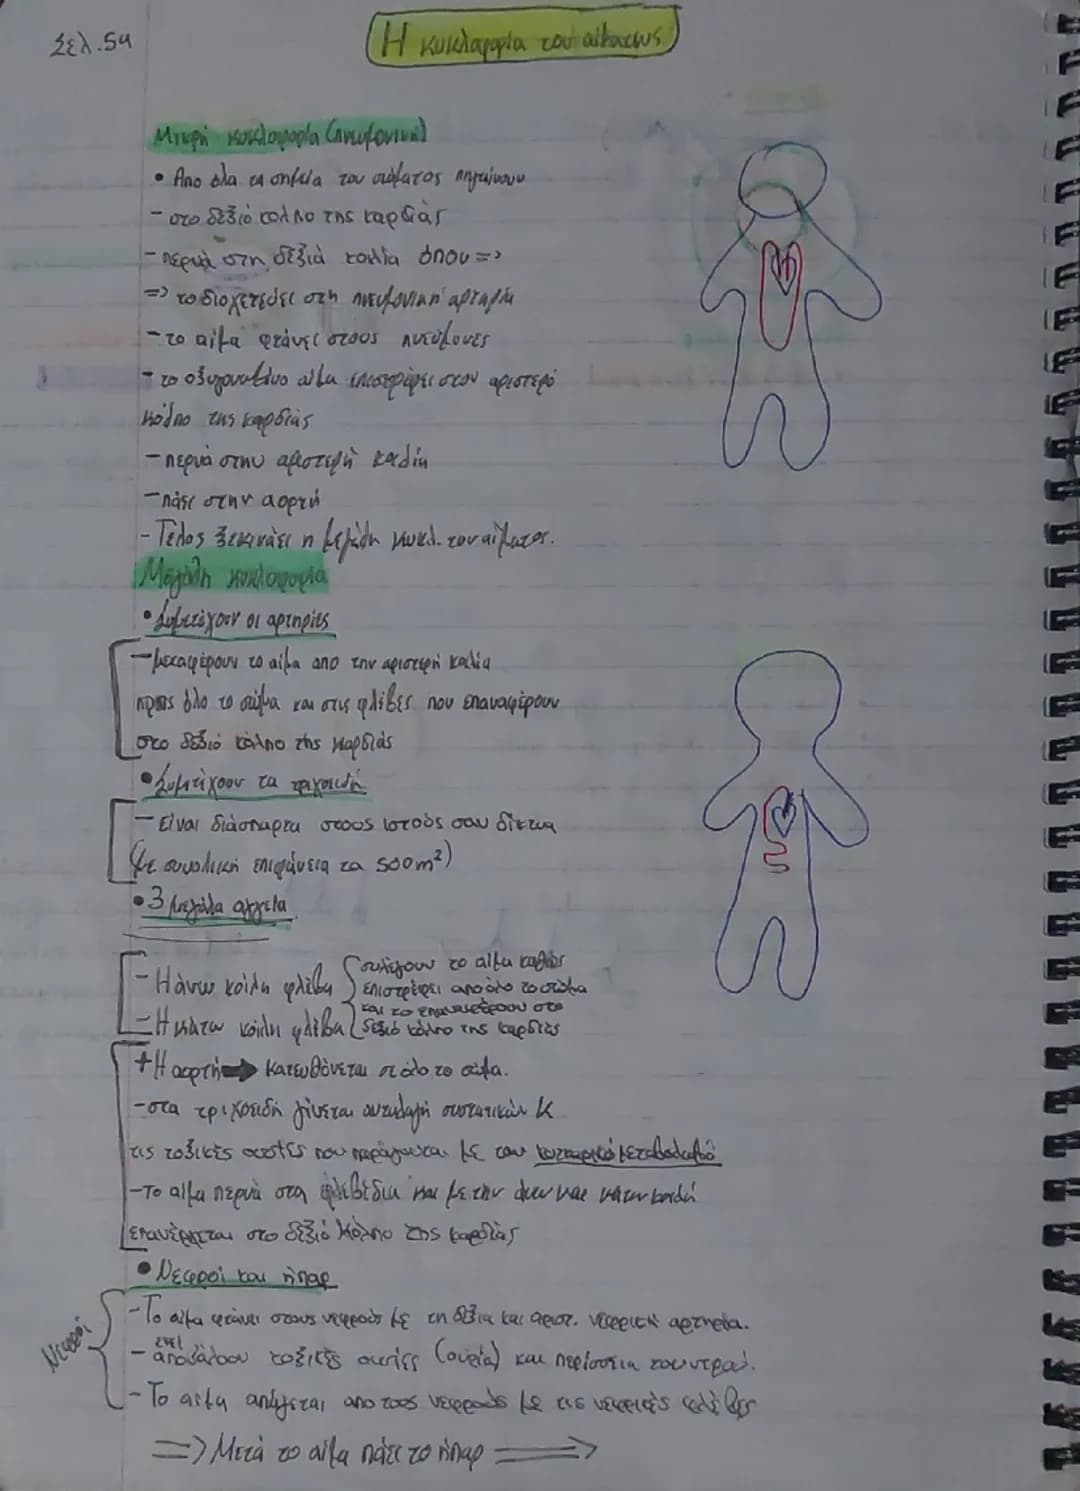 Σελ. 54
Η κυκλοφορία του αίματος
Μικρή κυκλοφορία (πνευμονική)
• Απο όλα τα σημεία του σώματος πηγαίνουν
- στο δεξιό κόλπο της καρδιάς
- περνά στη δεξιά κοιλία όπου =>
=> το διοχετεύει στη πνευμονική αρτηρία
- το αίμα φτάνει στους πνεύμονες
- το οξυγονωμένο αίμα επιστρέφει στον αριστερό
κόλπο της καρδιάς
- περνά στην αριστερή κοιλία
- πάει στην αορτή
- Τέλος ξεκινάει η μεγάλη κυκλ. του αίματος.
Μεγάλη κυκλοφορία
• Συμετέχουν οι αρτηρίες
- μεταφέρουν το αίμα απο την αριστερή κοιλία
προς όλο το σώμα και στις φλέβες που επαναφέρουν
στο δεξιό κόλπο της καρδιάς
• Συμετέχουν τα τριχοειδή
- Είναι διάσπαρτα στους ιστούς σαν δίκτυα
(με συνολική επιφάνεια τα 500m²)
• 3 μεγάλα αγγεία
- Η άνω κοίλη φλέβα
- Η κάτω κοίλη φλέβα
συλέγουν το αίμα καθώς
επιστρέφει από όλο το σώμα
και το επαναφέρουν στο
δεξιό κόλπο της καρδιάς
+ Η αορτή → κατευθύνεται σε όλο το σώμα.
- στα τριχοειδή γίνεται ανταλαγή συστατικών κ
τις τοξικές ουσίες που παράγονται με τον κυτταρικό μεταβολισμό
- Το αίμα περνά στα φλεβίδια και με την άνω και κάτω κοίλη
επανέρχεται στο δεξιό κόλπο της καρδιάς
• Νεφροί και ήπαρ
Νεφροί
- Το αίμα φτάνει στους νεφρούς με τη δεξιά και αριστ. νεφρική αρτηρία.
- εκεί αποβάλουν τοξικές ουσίες (ουρία) και περίσσεια του νερού.
- Το αίμα απάγεται απο τους νεφρούς με τις νεφρικές φλέβες
=> Μετά το αίμα πάει το ήπαρ =>